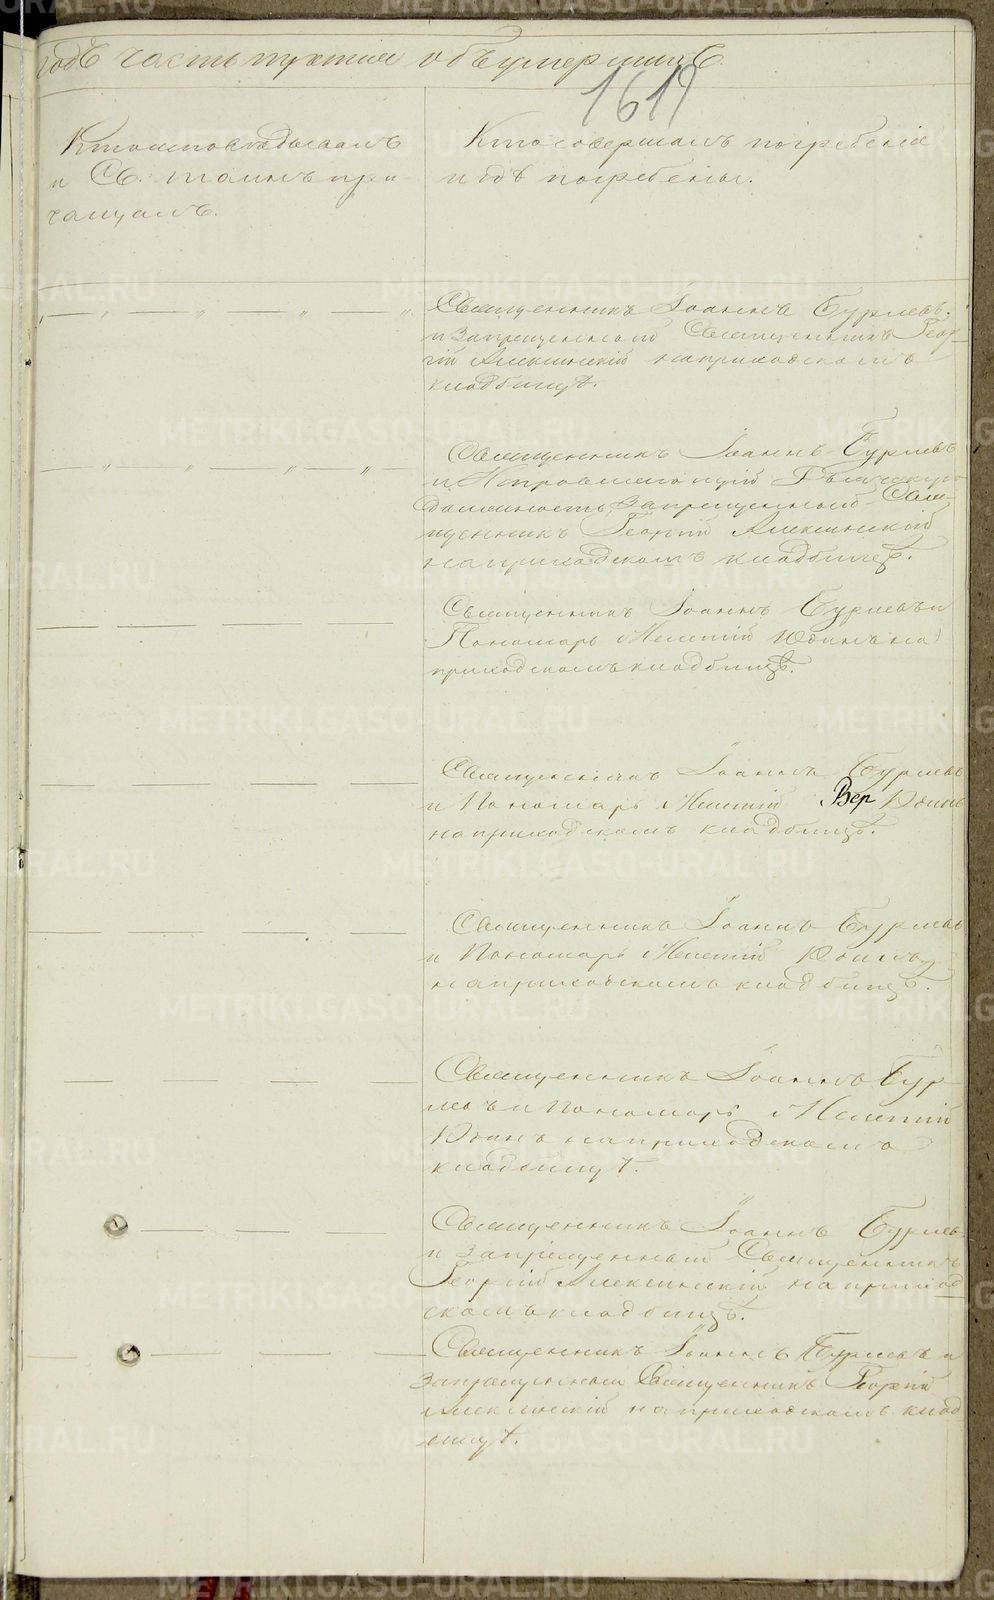 годъ часть третія объ умершихъ
1619
Кто исповѣдывалъ
и Св. таинъ прі
чащалъ.
Кто совершалъ погребеніе
и гдѣ погребены.
Священникъ Іоаннъ Бурлевъ
и запрещенный Священникъ Геор-
гій Алексинскій на приходскомъ
кладбищѣ.
Священникъ Іоаннъ Бурлевъ
и
должность запрещенный Свя-
щенникъ Георгій Алексинскій
на приходскомъ кладбищѣ.
Священникъ Іоаннъ Бурлевъ и
Пономарь Мелетій Юдинъ на
приходскомъ кладбищѣ.
Священникъ Іоаннъ Бурлевъ
и Пономарь Мелетій Вер Юдинъ
на приходскомъ кладбищѣ.
Священникъ Іоаннъ Бурлевъ
и Пономарь Мелетій Юдинъ
на приходскомъ кладбищѣ.
Священникъ Іоаннъ Бур-
левъ и Пономарь Мелетій
Юдинъ на приходскомъ
кладбищѣ.
Священникъ Іоаннъ Бурлевъ
и запрещенный Священникъ
Георгій Алексинскій на приход-
скомъ кладбищѣ.
Священникъ Іоаннъ Бурлевъ и
запрещенный Священникъ Георгій
Алексинскій на приходскомъ клад
бищѣ.
METRIKI.GASO-URAL.RU